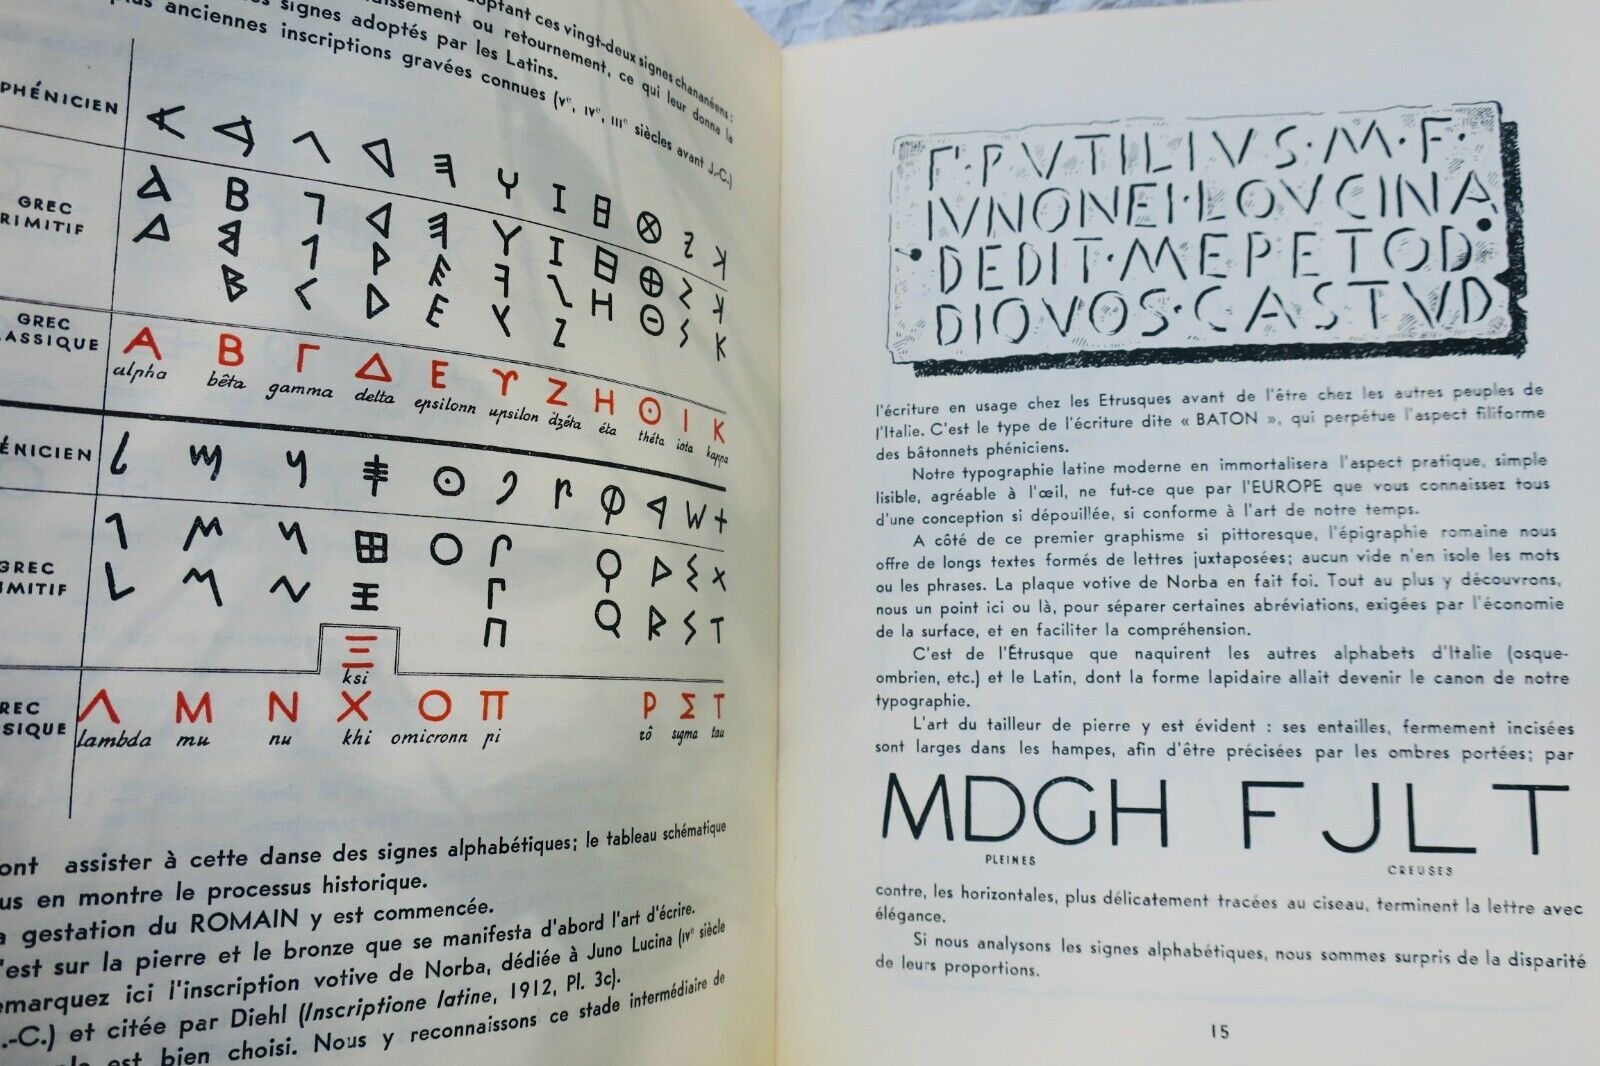 optant ces vingt-deux signes chananéens :
issement ou retournement, ce qui leur donna la
signes adoptés par les Latins.
plus anciennes inscriptions gravées connues (Vᵉ, IVᵉ, IIIᵉ siècles avant J.-C.)
PHÉNICIEN
GREC
RIMITIF
GREC
LASSIQUE
Α Β Γ Δ Ε ϒ Ζ Η ʘ Ι Κ
alpha bêta gamma delta epsilonn upsilon dzéta éta théta iota kappa
ÉNICIEN
GREC
IMITIF
Ξ
ksi
REC
SSIQUE
Λ Μ Ν Χ Ο Π Ρ Σ Τ
lambda mu nu khi omicronn pi rô sigma tau
ont assister à cette danse des signes alphabétiques; le tableau schématique
us en montre le processus historique.
a gestation du ROMAIN y est commencée.
'est sur la pierre et le bronze que se manifesta d'abord l'art d'écrire.
emarquez ici l'inscription votive de Norba, dédiée à Juno Lucina (IVᵉ siècle
.-C.) et citée par Diehl (Inscriptione latine, 1912, Pl. 3c).
est bien choisi. Nous y reconnaissons ce stade intermédiaire de
P·PVTILIVS·M·F·
IVNONEI·LOVCINA
DEDIT·MEPETOD
DIOVOS·CASTVD
l'écriture en usage chez les Etrusques avant de l'être chez les autres peuples de
l'Italie. C'est le type de l'écriture dite « BATON », qui perpétue l'aspect filiforme
des bâtonnets phéniciens.
Notre typographie latine moderne en immortalisera l'aspect pratique, simple
lisible, agréable à l'œil, ne fut-ce que par l'EUROPE que vous connaissez tous
d'une conception si dépouillée, si conforme à l'art de notre temps.
A côté de ce premier graphisme si pittoresque, l'épigraphie romaine nous
offre de longs textes formés de lettres juxtaposées; aucun vide n'en isole les mots
ou les phrases. La plaque votive de Norba en fait foi. Tout au plus y découvrons,
nous un point ici ou là, pour séparer certaines abréviations, exigées par l'économie
de la surface, et en faciliter la compréhension.
C'est de l'Étrusque que naquirent les autres alphabets d'Italie (osque-
ombrien, etc.) et le Latin, dont la forme lapidaire allait devenir le canon de notre
typographie.
L'art du tailleur de pierre y est évident : ses entailles, fermement incisées
sont larges dans les hampes, afin d'être précisées par les ombres portées; par
MDGH FJLT
PLEINES CREUSES
contre, les horizontales, plus délicatement tracées au ciseau, terminent la lettre avec
élégance.
Si nous analysons les signes alphabétiques, nous sommes surpris de la disparité
de leurs proportions.
15